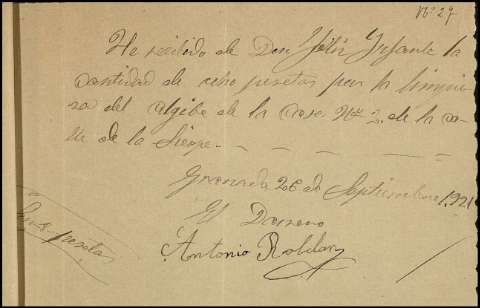 Nº 29
He recibido de Don Félix Infante la
cantidad de ocho pesetas por la limpie
za del algibe de la casa Nº 2 de la ca
lle de la Sierpe
Granada 26 de Septiembre 1921
El Darrero
Antonio Roldan
pesetas